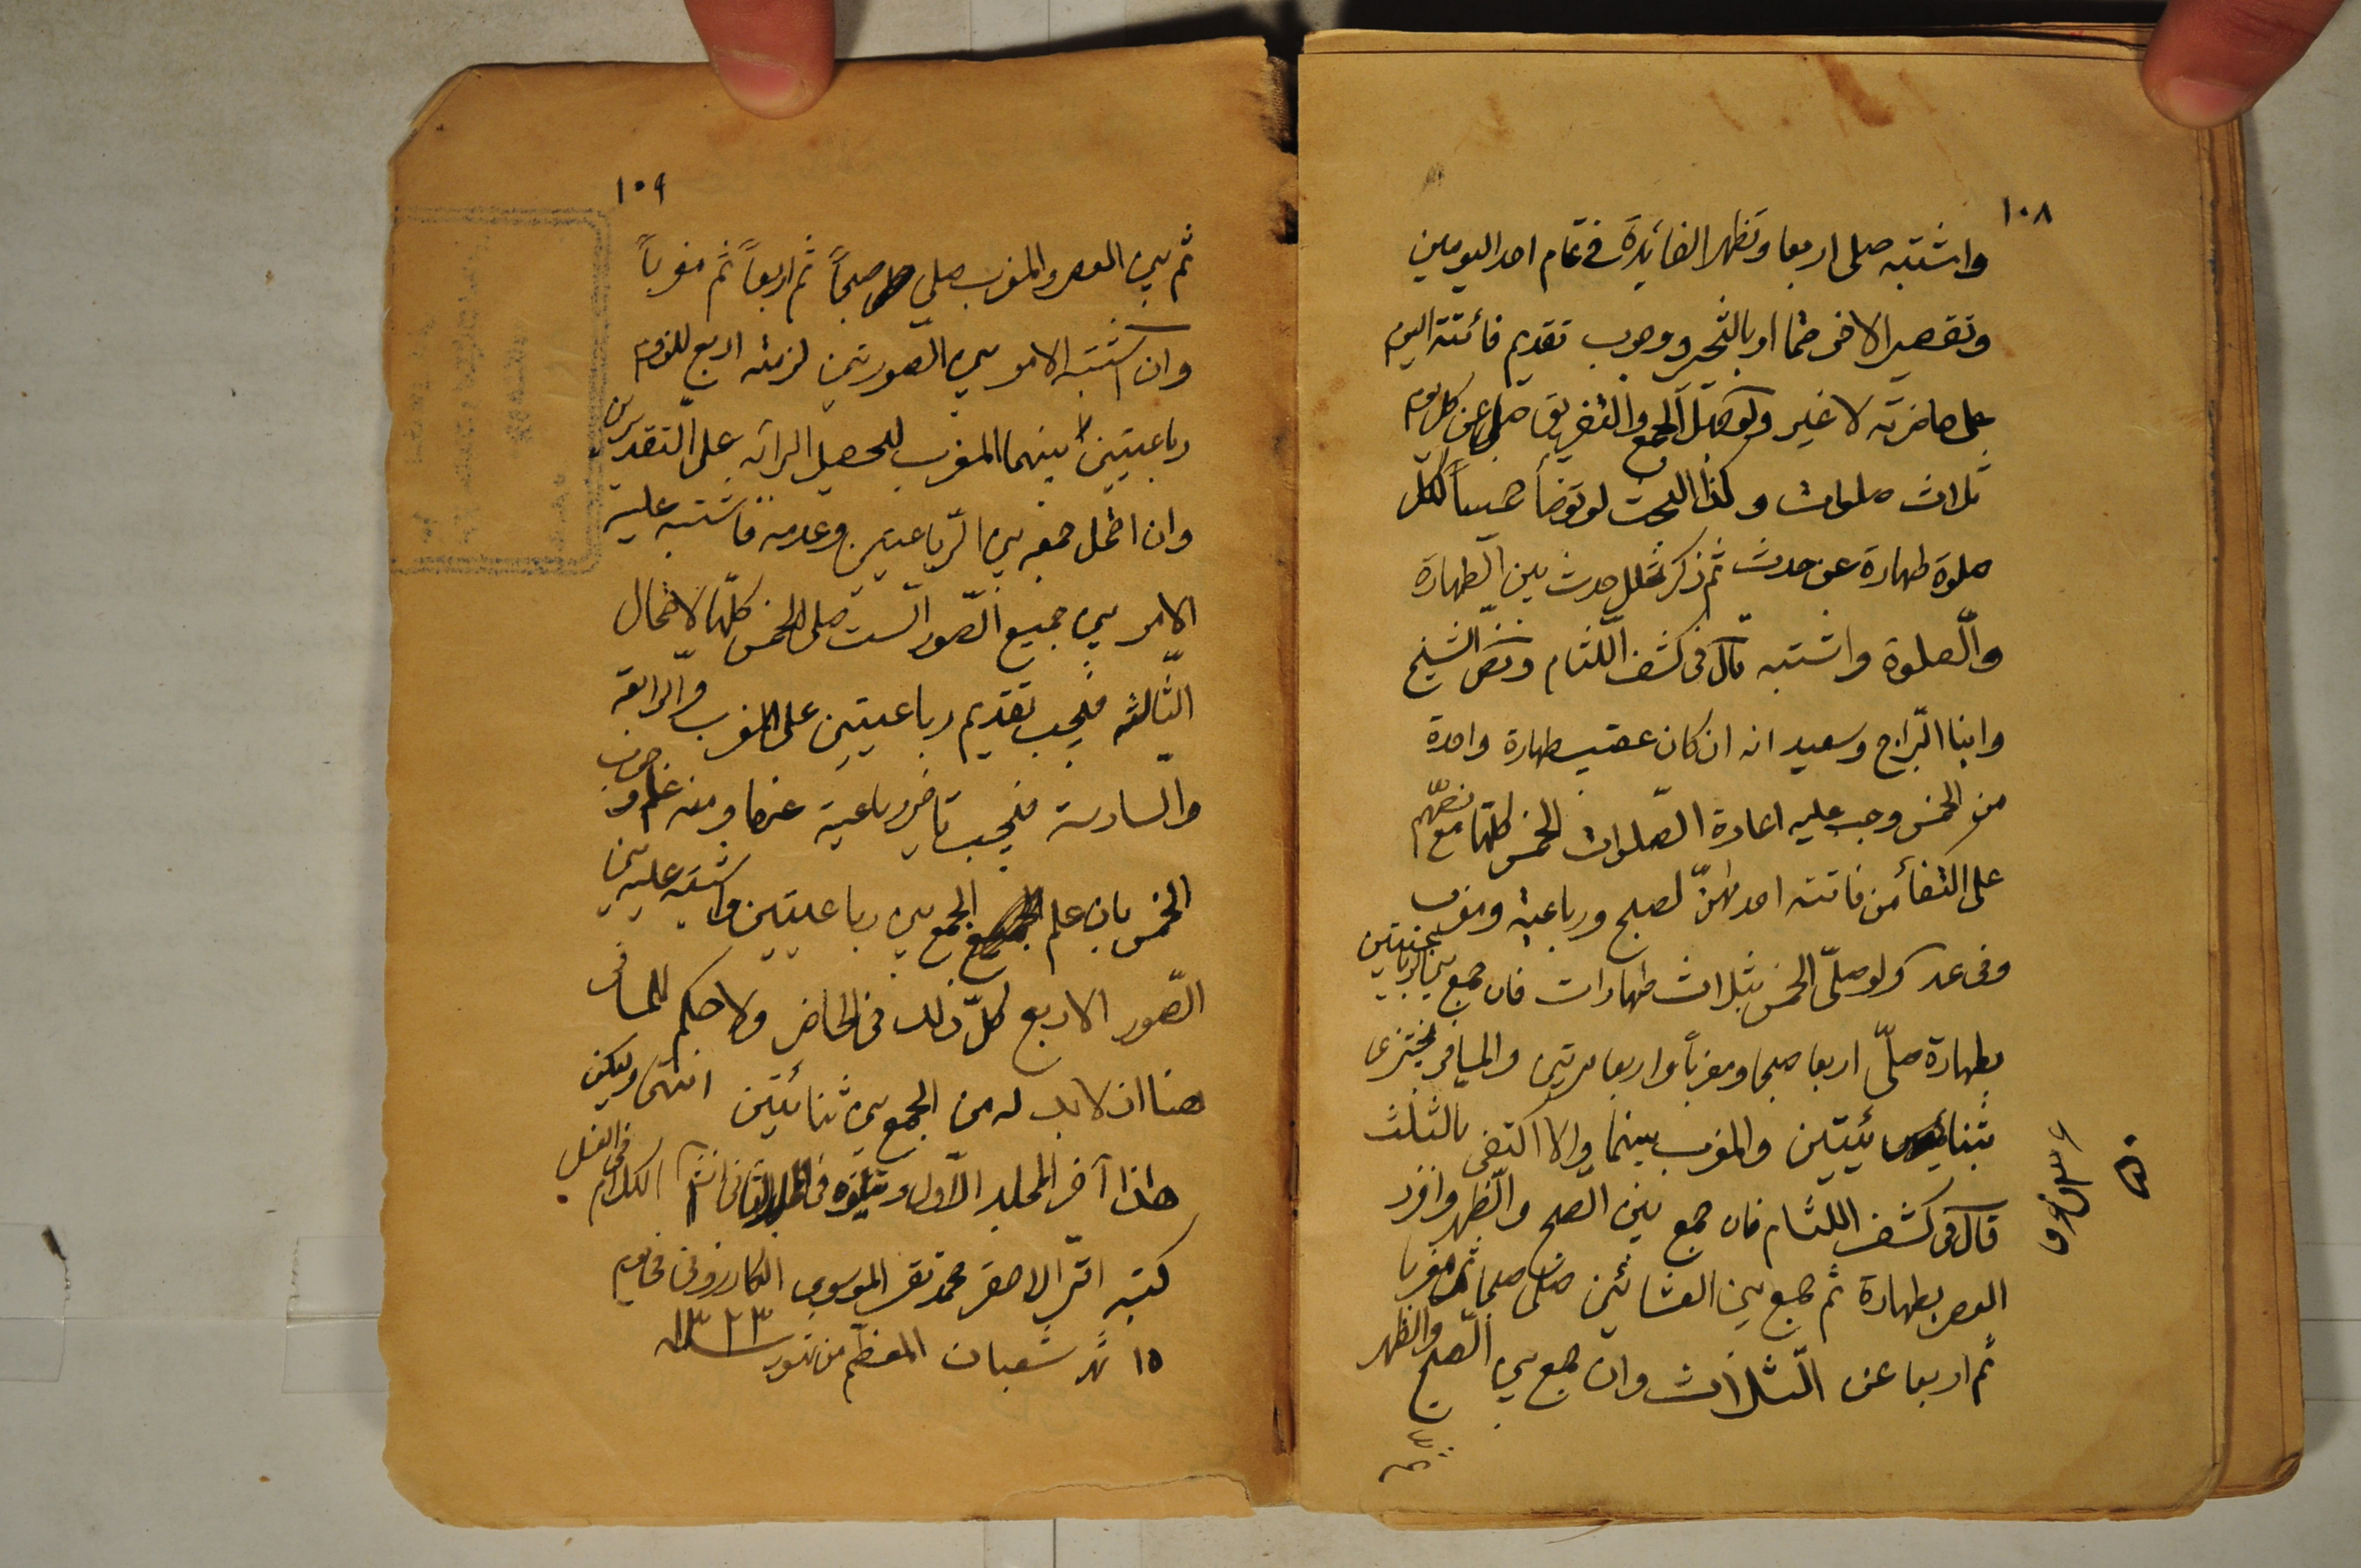 ١٠٨
واشتبه صلى اربعا وتظهر الفائدة فى تمام احد اليومين
وتقصير الاخر حتما او بالتخيير ووجوب تقديم فائتة اليوم
على حاضرته لا غير ولو جهل الجمع والتفريق صلى عن كل يوم
ثلاث صلوات وكذا البحث لو توضأ خمساً لكل
صلوة طهارة عن حدث ثم ذكر تخلل حدث بين الطهارة
والصلوة واشتبه قال فى كشف اللثام ونص الشيخ
وابنا البراج وسعيد انه ان كان عقيب طهارة واحدة
من الخمس وجب عليه اعادة الصلوات الخمس كلها مع نصهم
على اكتفاء من فاتته احداهن لصبح ورباعية ومغرب
وفى عد ولو صلى الخمس بثلاث طهارات فان جمع بين الرباعيتين
بطهارة صلى اربعا صبحا ومغرباً واربعا مرتين والمسافر يجتزى
بثنائيتين والمغرب بينهما والا اكتفى بالثلث
قال فى كشف اللثام فان جمع بين الصبح والظهر وافرد
العصر بطهارة ثم جمع بين العشائين صلى صبحا ثم مغربا
ثم اربعا عن الثلاث وان جمع بين الصبح والظهر
١٠٩
ثم بين العصر والمغرب صلى صبحاً ثم اربعاً ثم مغرباً
وان اشتبه الامر بين الصورتين لزمته اربع للزوم
رباعيتين بينهما المغرب لتحصيل البرائة على التقديرين
وان احتمل جمعه بين الرباعيتين وعدمه فاشتبه عليه
الامر بين جميع الصور الست صلى الخمس كلها لاحتمال
الثالثة فيجب تقديم رباعيتين على المغرب والرابعة
والسادسة فيجب تاخير رباعية عنها ومنه علم وجوب
الخمس بان علم الجمع بين رباعيتين واشتبه عليه بين
الصور الاربع كل ذلك فى الحاضر ولا حكم للمسافر
هنا اذ لا بد له من الجمع بين ثنائيتين انتهى وليكن
هذا آخر المجلد الاول ويتلوه فى المجلد الثانى انشاء الكلام فى الغسل
كتبه اقل الاحقر محمد تقى الموسوى الكازرونى فى يوم
١٥ شهر شعبان المعظم من شهور سنة ١٣٢٣